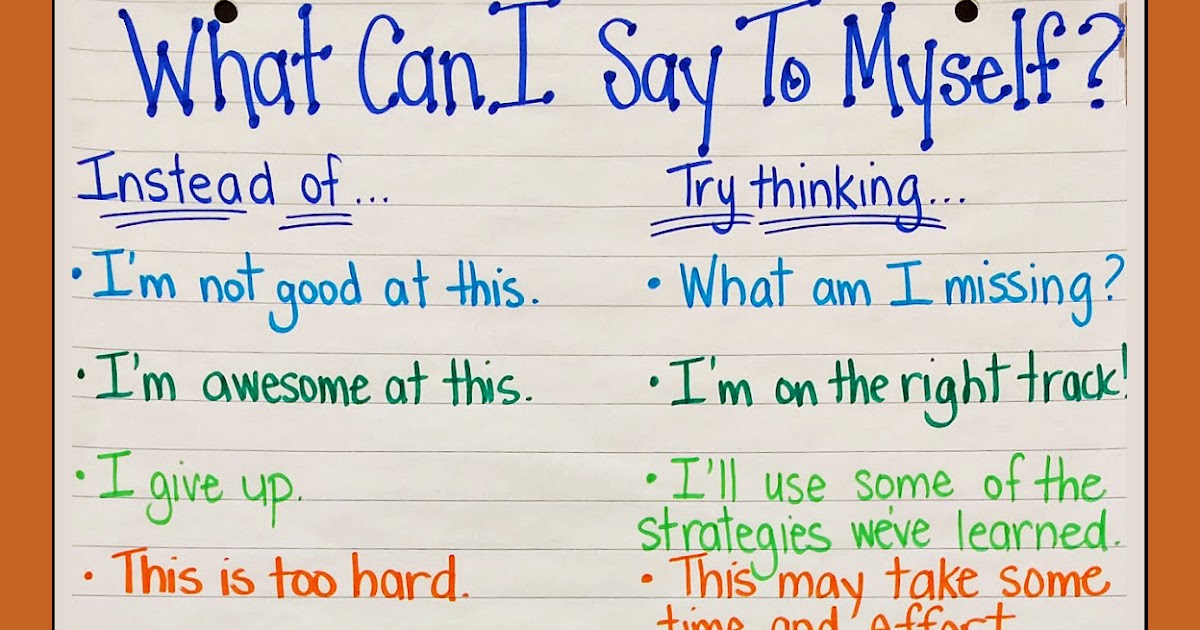 What Can I Say To Myself?
Instead of... Try thinking...
• I'm not good at this. • What am I missing?
• I'm awesome at this. • I'm on the right track!
• I give up. • I'll use some of the
strategies we've learned.
• This is too hard. • This may take some
time and effort